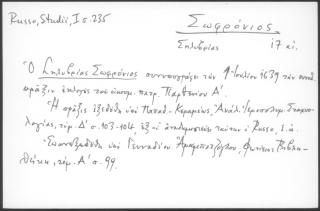 Russo, Studii, I σ. 235
Σωφρόνιος
Σηλυβρίας 17 αἰ.
Ὁ Σηλυβρίας Σωφρόνιος συνυπογράφει τὴν 9 Ἰουλίου 1639 τὴν συνοδ.
πρᾶξιν ἐκλογῆς τοῦ οἰκουμ. πατρ. Παρθενίου Α΄.
Ἡ πρᾶξις ἐξεδόθη ὑπὸ Παπαδ.-Κεραμέως, Ἀνάλ. Ἱεροσολυμ. Σταχυο-
λογίας, τόμ. Δ΄ σ. 103-104, ἐξ οὗ ἀναδημοσιεύει ταύτην ὁ Russo, ἔ.ἀ.
Ἐπανεξεδόθη ὑπὸ Γενναδίου Ἀραμπατζόγλου, Φωτίειος Βιβλιο-
θήκη, τόμ. Α΄ σ. 99.